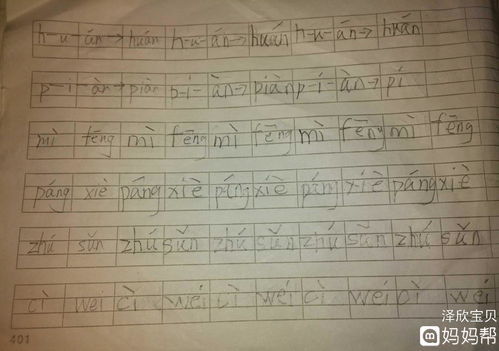 h-u-án→huán h-u-án→huán h-u-án→huán
p-i-àn→piàn p-i-àn→piàn p-i-àn→pí
mì fēng mì fēng mì fēng mì fēng mì fēng
páng xiè páng xiè páng xiè páng xiè páng xiè
zhú sǔn zhú sǔn zhú sǔn zhú sǔn zhú sǔn
cì wei cì wei cì wei cì wei cì wei
401
泽欣宝贝
妈妈帮